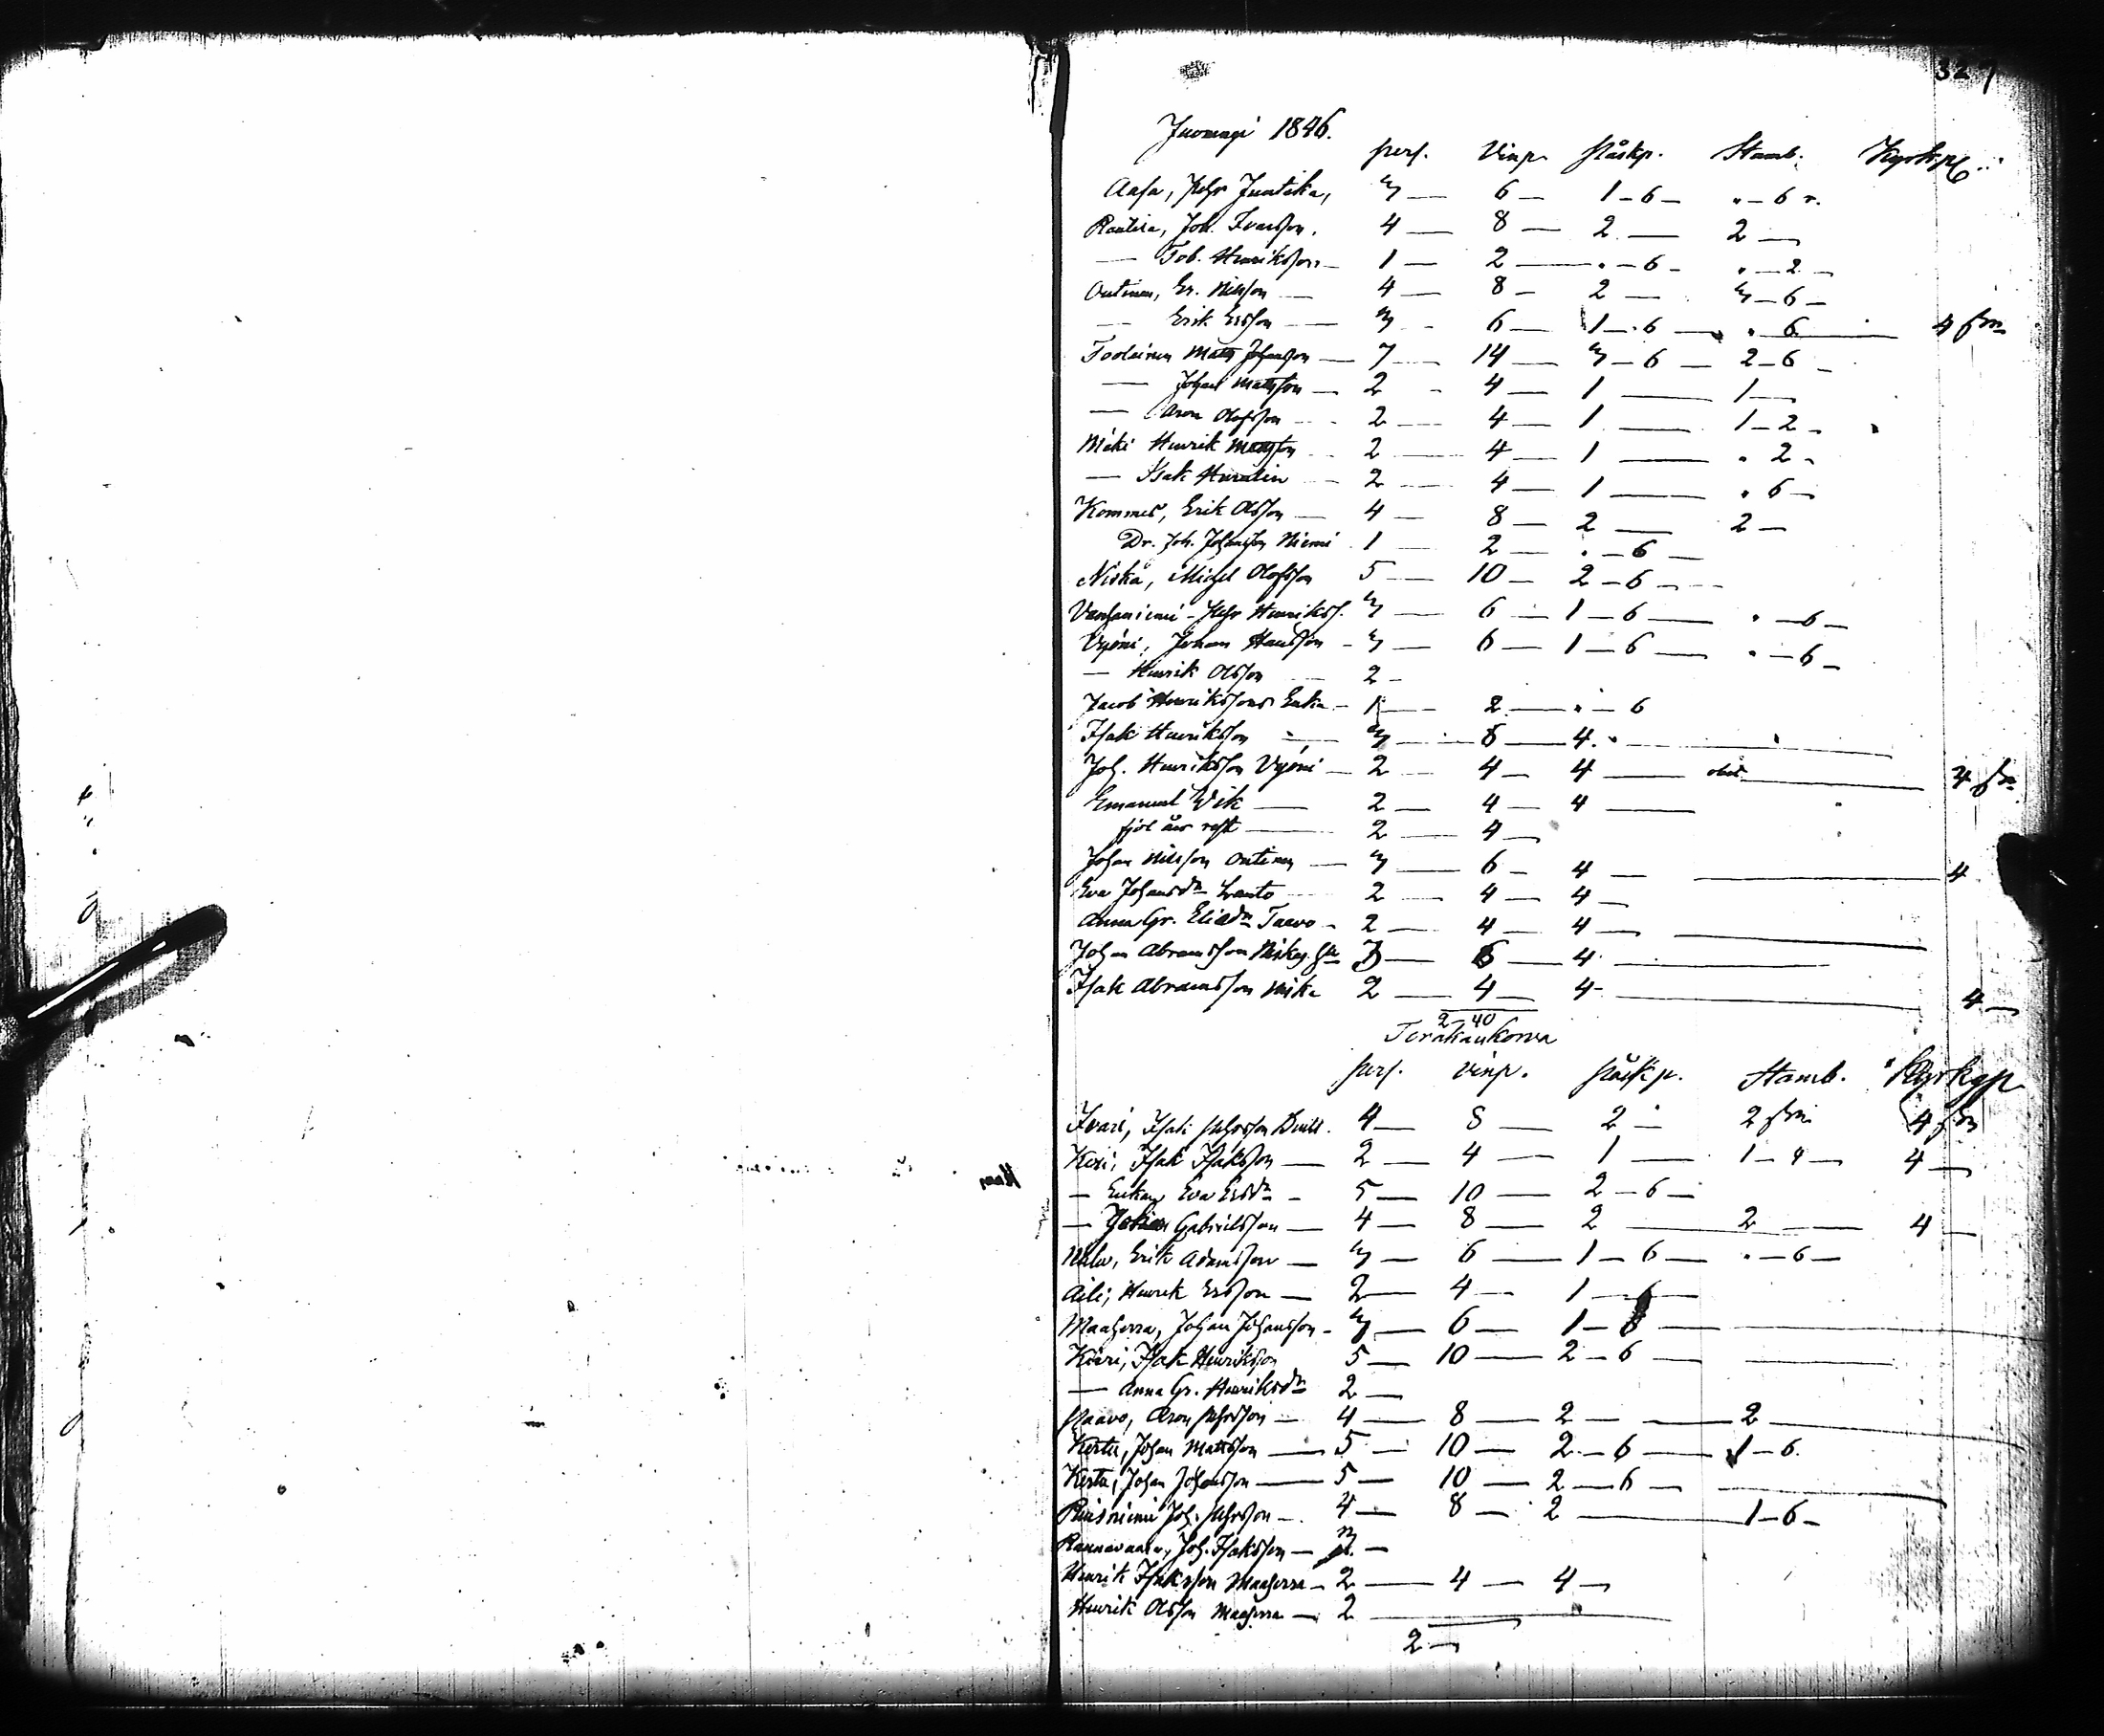 327
Juomagi 1846.
pers. Vinp. påskp. Stamb. Kyrk.p
Aasa, Pehr Juntika, 3 — 6 — 1 — 6 — " — 6 r.
Rautila, Joh. Ivarsson. 4 — 8 — 2 — 2 —
— Tob. Henriksson — 1 — 2 — " — 6 — " — 2 —
Outinen, Er. Nilsson — 4 — 8 — 2 — 3 — 6 —
— Erik Ersson — 3 — 6 — 1 — 6 — " 6 — 4
Toolainen Matts Johansson — 7 — 14 — 3 — 6 — 2 — 6 —
— Johan Mattsson — 2 — 4 — 1 — 1 —
— Aron Olofsson — 2 — 4 — 1 — 1 — 2 —
Mäki Henrik Mattsson 2 — 4 — 1 — " 2 —
— Isak Huralin 2 — 4 — 1 — " 6 —
Kommes, Erik Olsson — 4 — 8 — 2 — 2 —
Dr. Joh. Johansson Niemi 1 — 2 — " — 6 —
Niska, Michel Olofsson 5 — 10 — 2 — 6 —
Vanhaniemi — Pehr Henrikss. 3 — 6 — 1 — 6 — " — 6 —
Vyöni, Johan Hansson — 3 — 6 — 1 — 6 — " — 6 —
— Henrik Olsson 2 —
Jacob Henrikssons Enka — 1 — 2 — " — 6
Isak Henriksson — 3 — 6 — 4 —
Joh. Henriksson Vyöni — 2 — 4 — 4 — 4
Emanuel Wik — 2 — 4 — 4 —
fjol års rest — 2 — 4 —
Johan Nilsson Outinen — 3 — 6 — 4 — 4
Eva Johansdr Lanto 2 — 4 — 4 —
Anna Gr. Eliadr Taavo — 2 — 4 — 4 —
Johan Abramsson Niska 3 — 6 — 4 —
Isak Abramsson Niska 2 — 4 — 4 — 4 —
2 — 40
Torakankorva
pers. vinp. påskp. Stamb. Kyrkop
Ivari, Isak Pehrsson 4 — 8 — 2 — 2 4
Keri, Isak Isaksson — 2 — 4 — 1 — 1 — 4 — 4 —
— Enkan Eva Ersdr — 5 — 10 — 2 — 6 —
— Johan Gabrielsson — 4 — 8 — 2 — 2 — 4 —
Erik Adamsson — 3 — 6 — 1 — 6 — " — 6 —
Aili, Henrik Ersson — 2 — 4 — 1 — 6 —
Maaherra, Johan Johansson — 3 — 6 — 1 — 6 —
Kieri, Isak Henriksson 5 — 10 — 2 — 6 —
— Anna Gr. Henriksdr 2 —
Paavo, Aron Pehrsson — 4 — 8 — 2 — 2 —
Kerttu, Johan Mattsson — 5 — 10 — 2 — 6 — 1 — 6.
Kerttu, Johan Johansson — 5 — 10 — 2 — 6 —
Joh. Pehrsson — 4 — 8 — 2 — 1 — 6 —
Rannavaara, Joh. Isaksson —
Henrik Isaksson Maaherra — 2 — 4 — 4 —
Henrik Olsson Maaherra — 2 —
2 —